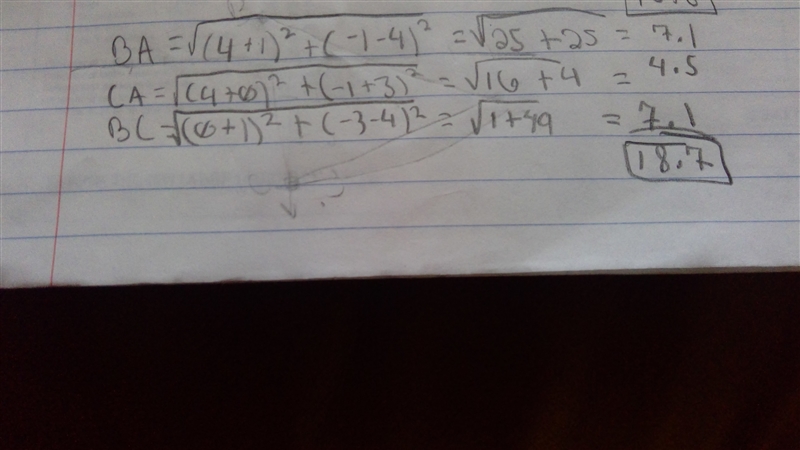 BA = √(4+1)² + (-1-4)² = √25 + 25 = 7.1
CA = √(4+0)² + (-1+3)² = √16 + 4 = 4.5
BC = √(0+1)² + (-3-4)² = √1+49 = 7.1
18.7